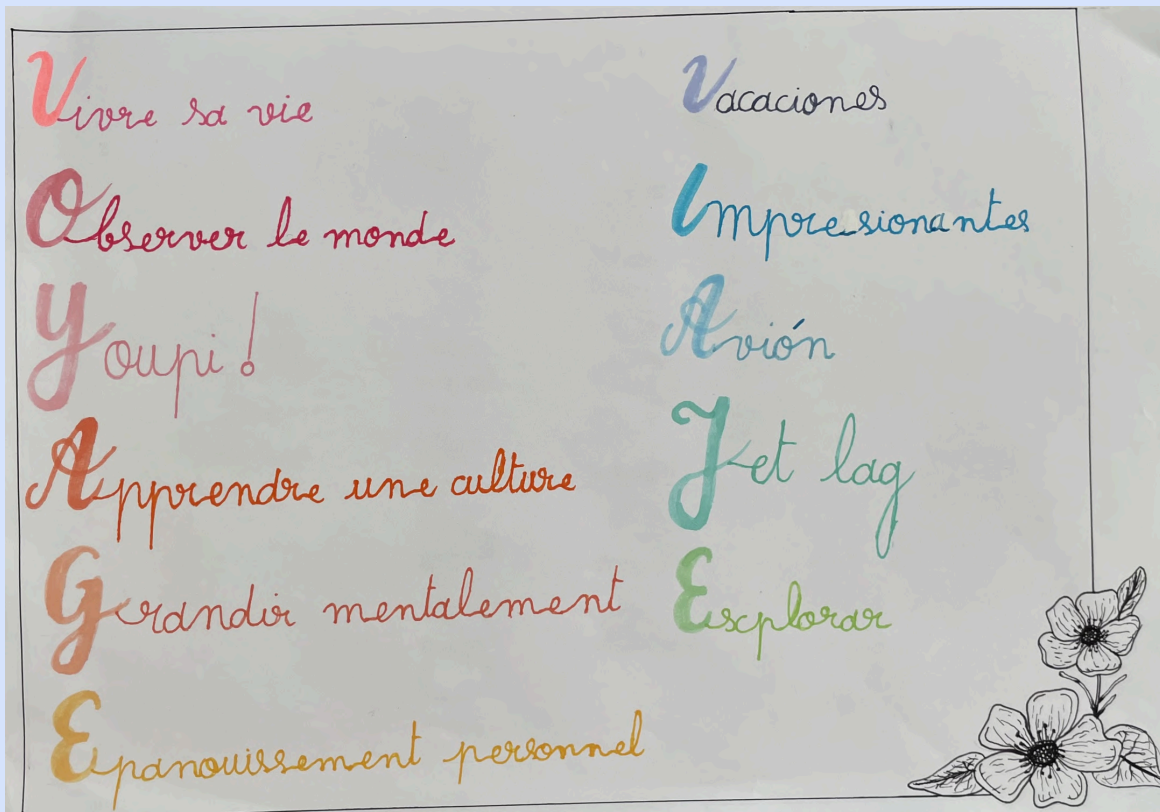 Vivre sa vie
Observer le monde
Youpi !
Apprendre une culture
Grandir mentalement
Epanouissement personnel
Vacaciones
Impresionantes
Avión
Jet lag
Explorar